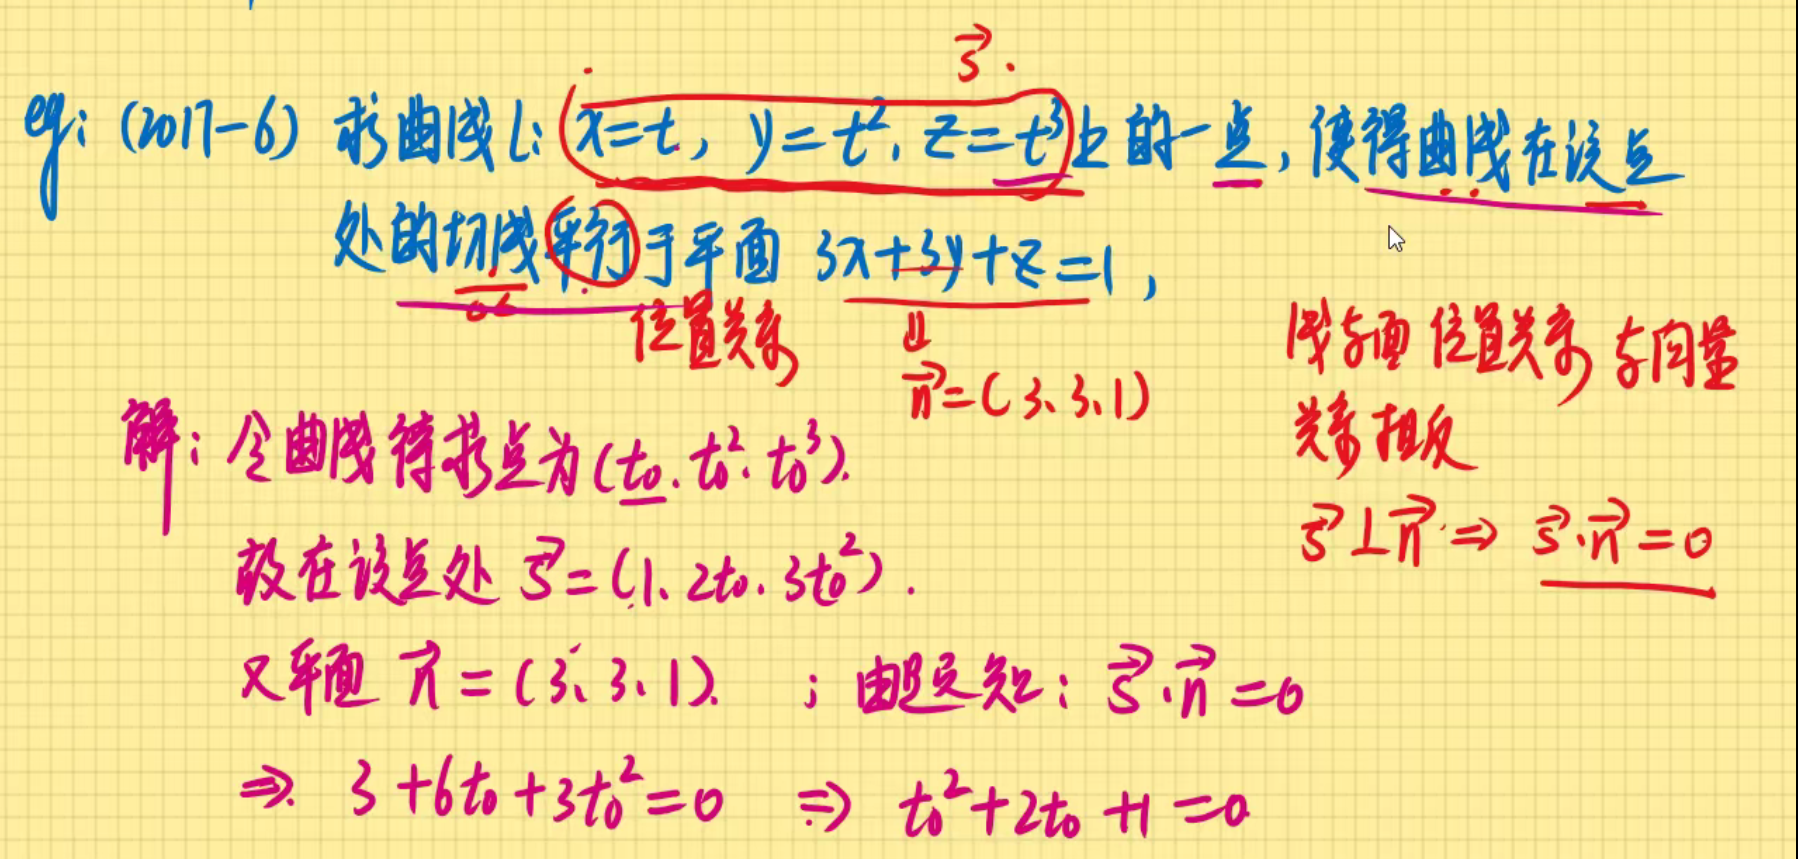 s⃗.
eg: (2017-6) 求曲线L: x=t, y=t², z=t³上的一点, 使得曲线在该点
处的切线平行于平面 3x+3y+z=1,
位置关系
⇓
n⃗=(3、3、1)
线与面 位置关系 与向量
关系相反
s⃗⊥n⃗ ⇒ s⃗·n⃗=0
解: 令曲线待求点为(t₀、t₀²、t₀³).
故在该点处 s⃗=(1、2t₀、3t₀²).
又平面 n⃗=(3、3、1). ; 由题知: s⃗·n⃗=0
⇒ 3+6t₀+3t₀²=0 ⇒ t₀²+2t₀+1=0